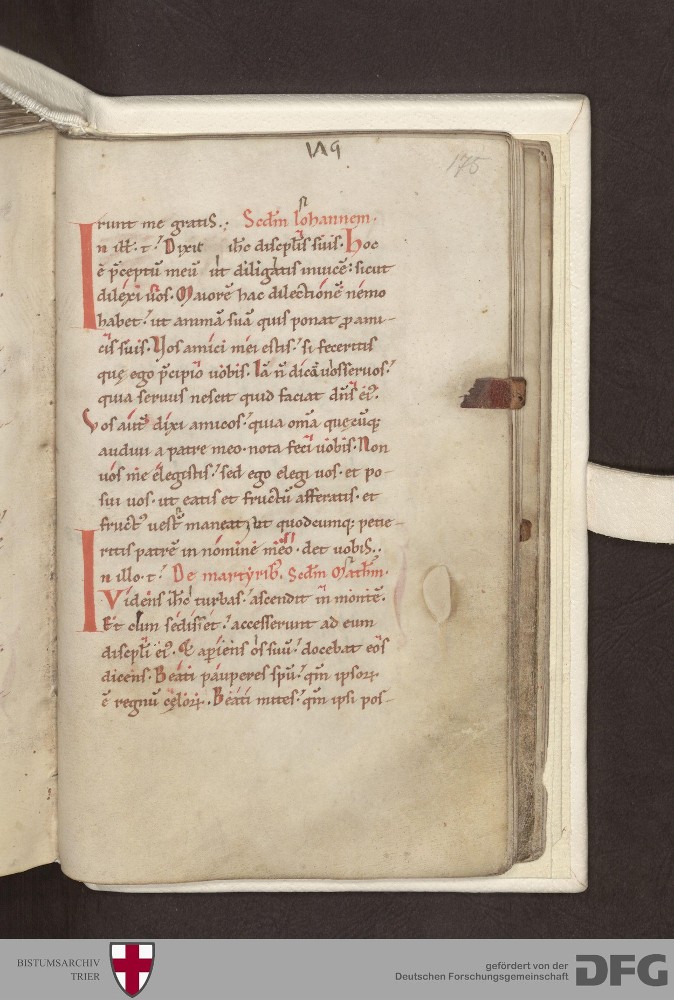 175
runt me gratis.; Scd̄m Iohannem.
In ill̄. t̄. Dixit ih̄c discipl̄is suis. Hoc
ē p̄ceptū meū ut diligatis inuicē: sicut
dilexi uos. Maiorē hac dilectionē nemo
habet: ut animā suā quis ponat pro ami-
cis suis. Vos amici mei estis: si feceritis
quę ego p̄cipio uobis. Iā n̄ dicā uos seruos:
quia seruus nescit quid faciat dn̄s ei᷒.
Vos aut̄ dixi amicos: quia om̄a quęcūq;
audiui a patre meo. nota feci uobis. Non
uos me elegistis: sed ego elegi uos. et po-
sui uos. ut eatis et fructū afferatis. et
fruct᷒ uest̄ maneat; ut quodcumq; petie-
ritis patrē in nomine meo. det uobis.;
In illo. t̄. De martyrib᷒. Scd̄m Math̄m.
Videns ih̄c turbas: ascendit in montē.
Et cum sedisset: accesserunt ad eum
discipl̄i ei᷒. Et aperiens os suū: docebat eos
dicens. Beati pauperes spū: qm̄ ipsoꝝ
ē regnū cęloꝝ. Beati mites: qm̄ ipsi pos-
BISTUMSARCHIV
TRIER
gefördert von der
Deutschen Forschungsgemeinschaft
DFG